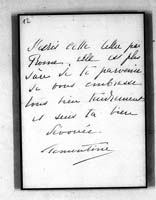 12
cette lettre par
Rome, elle est plus
sûre de te parvenir
Je vous embrasse
tous bien tendrement
et suis ta bien
dévouée
Clémentine